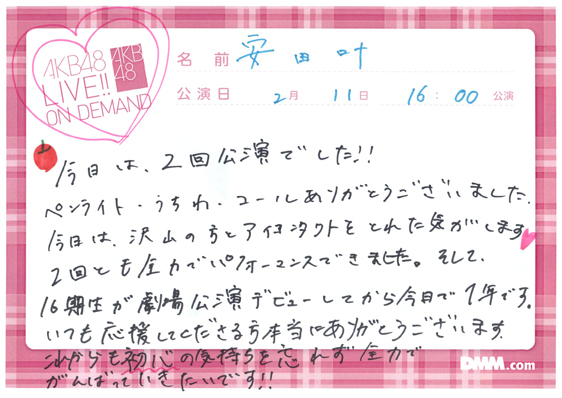 AKB48
LIVE!!
ON DEMAND
AKB
48
名前 安田叶
公演日 2月 11日 16:00 公演
今日は、2回公演でした!!
ペンライト・うちわ・コールありがとうございました。
今日は、沢山の方とアイコンタクトをとれた気がします
2回とも全力でパフォーマンスできました。そして
16期生が劇場公演デビューしてから今日で1年です。
いつも応援してくださる方本当にありがとうございます。
これからも初心の気持ちを忘れず全力で
がんばっていきたいです!!
DMM.com